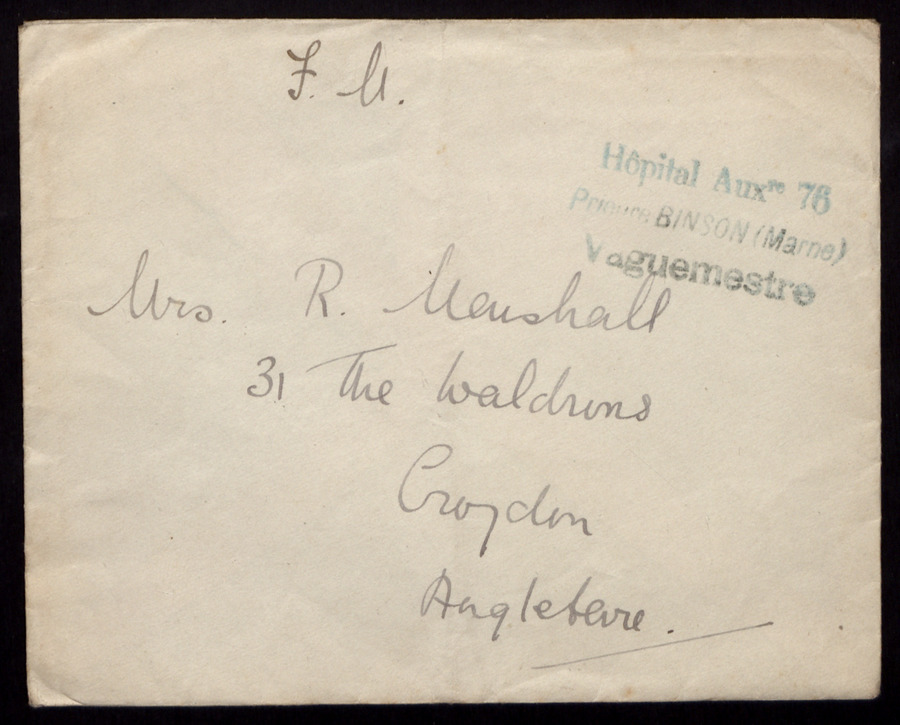 F. M.
Hôpital Auxre 76
Prieuré BINSON (Marne)
Vaguemestre
Mrs. R. Marshall
31 The Waldrons
Croydon
Angleterre.